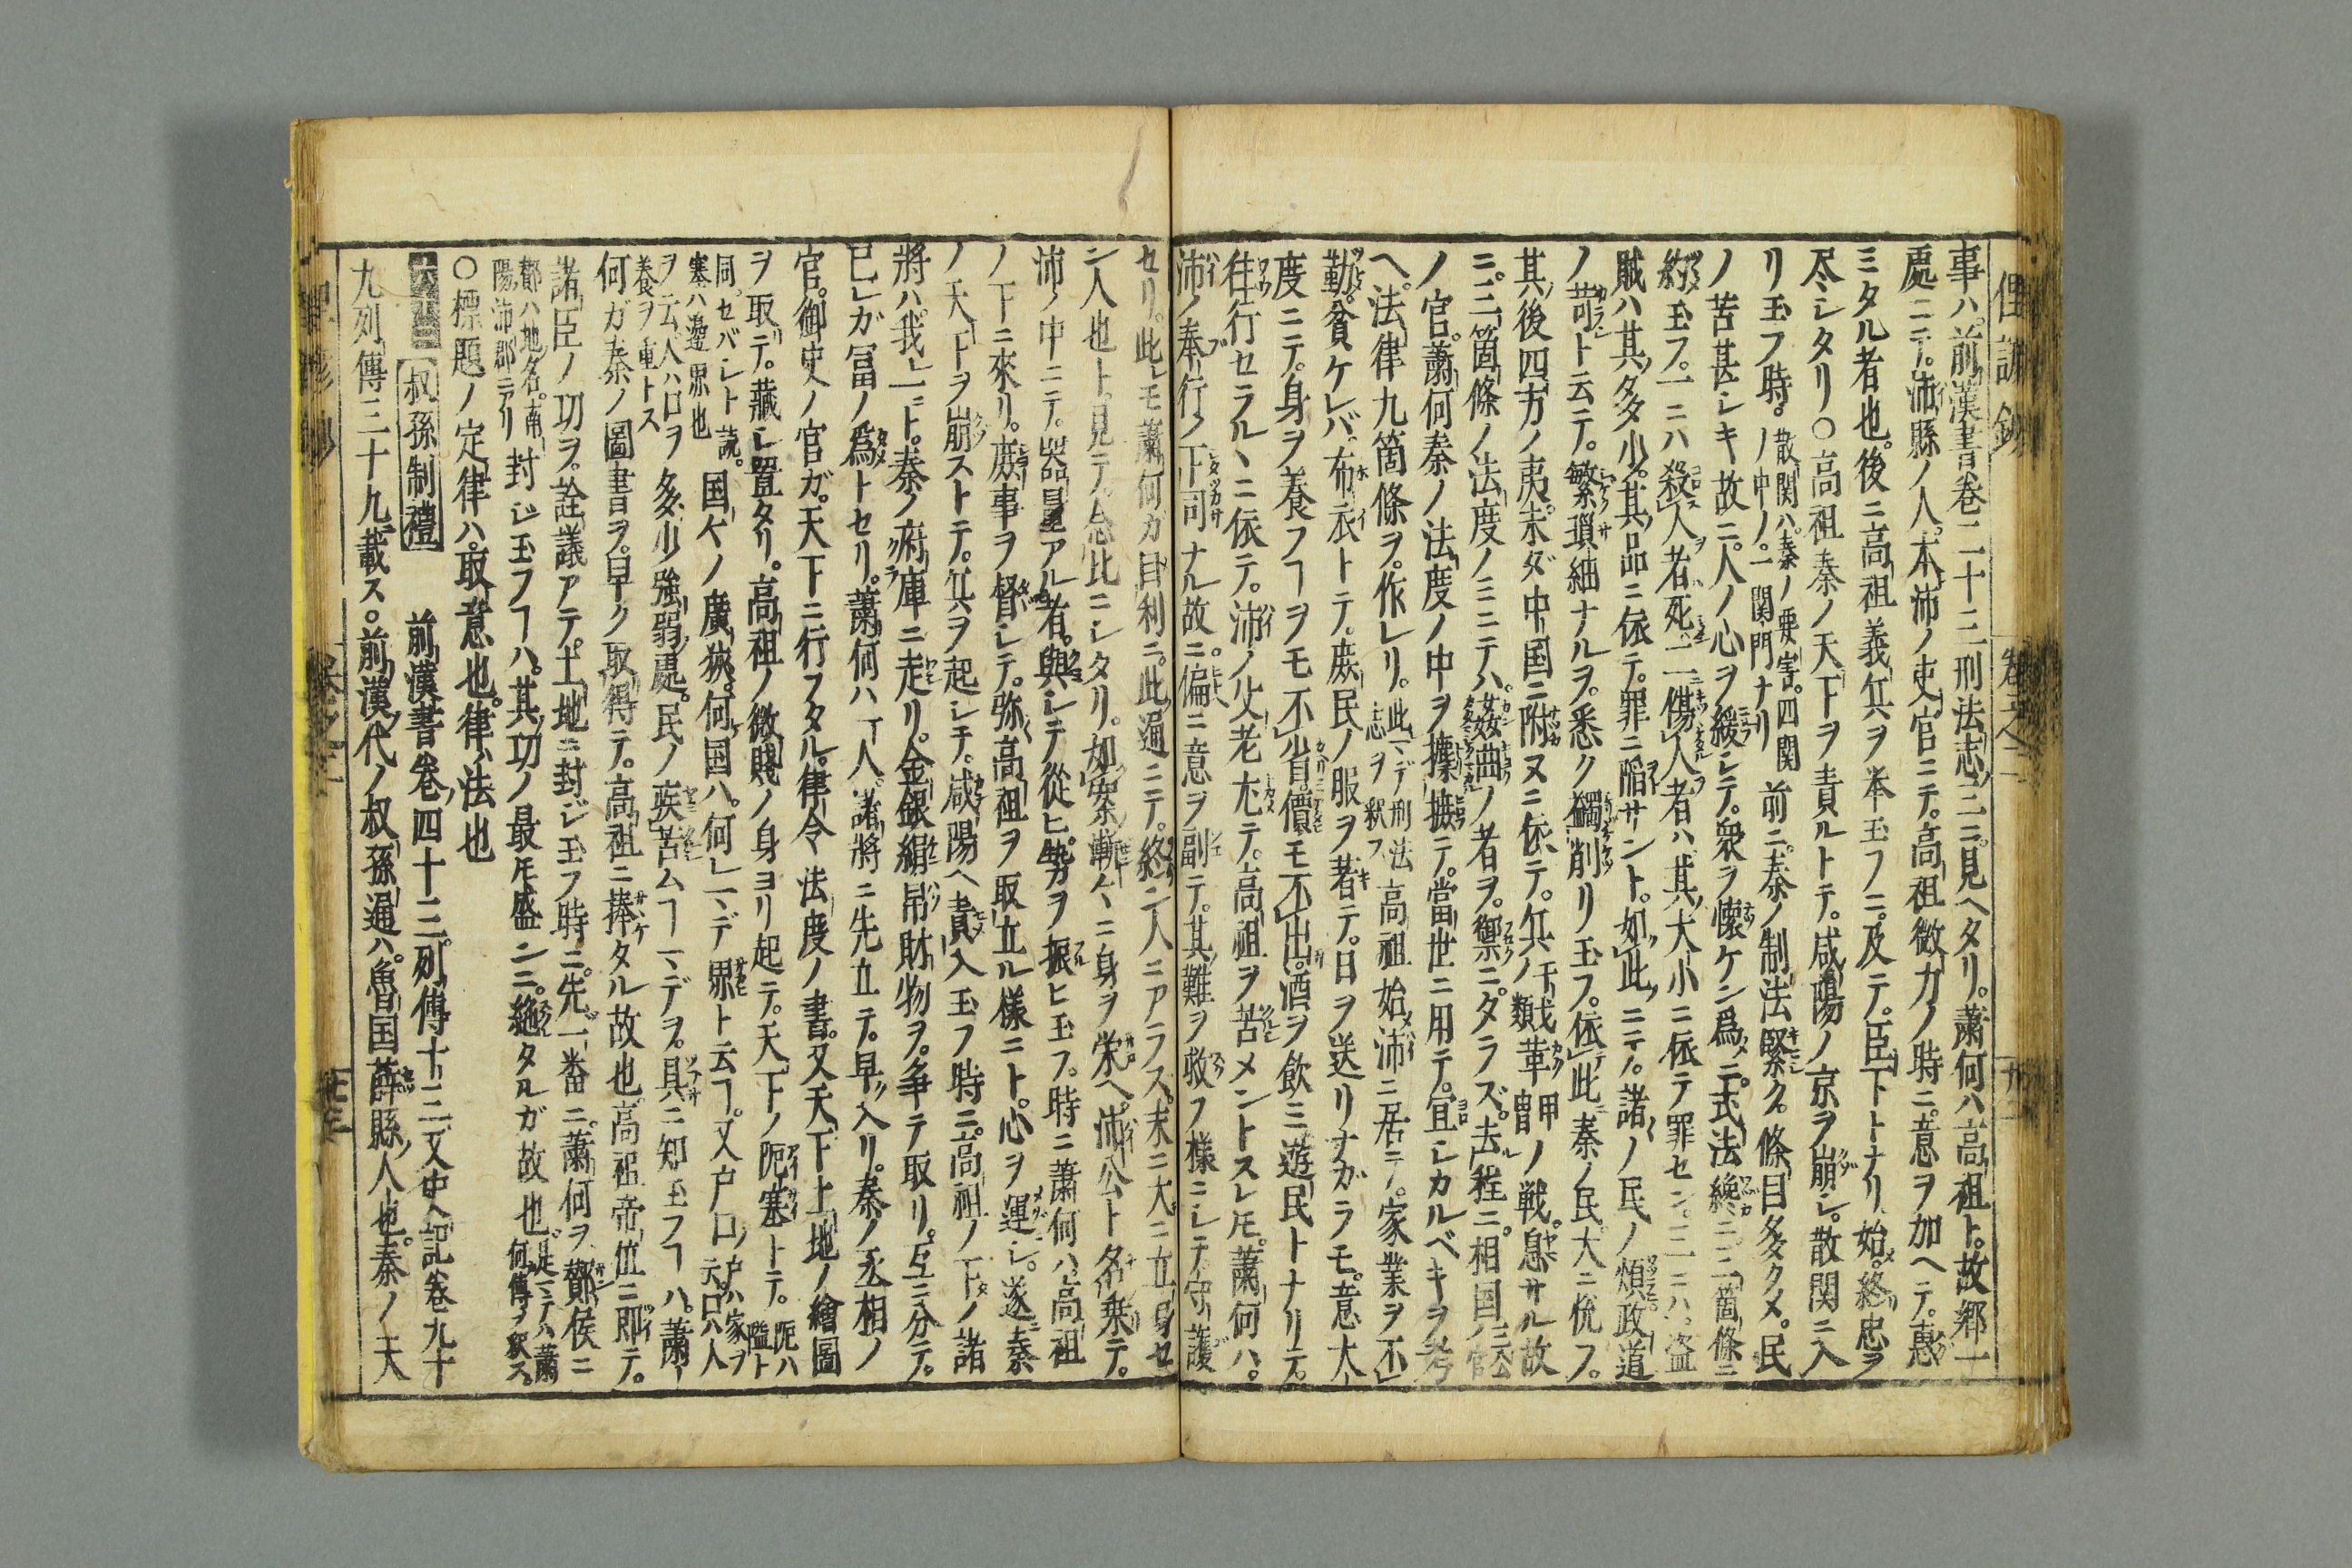 事ハ前漢書巻二十三刑法志三ニ見ヘタリ。蕭何ハ高祖ト故郷一
處ニテ。沛縣ノ人。本沛ノ吏官ニテ。高祖微力ノ時ニ。意ヲ加ヘテ。惠
ミタル者也。後ニ高祖義兵ヲ举玉フニ。及テ。臣下トナリ始。終忠ヲ
尽シタリ〇高祖秦ノ天下ヲ責ルトテ。咸陽ノ京ヲ崩シ。散関ニ入
リ玉フ時。散関ハ。秦ノ要害。四関ノ中ノ。一関門ナリ前ニ。秦ノ制法緊ク。條目多クメ。民
ノ苦甚シキ故ニ。人ノ心ヲ緩シテ。衆ヲ懷ケン爲ニ。式法纔ニ三箇條ニ
約玉フ。一ニハ殺人者死。二傷人者ハ其大小ニ依テ罪セン。三ニハ盗
賊ハ其多小。其品ニ依テ。罪ニ陥サント。如此ニテ。諸ノ民ノ煩政道
ノ苛ト云テ。繁瑣細ナルヲ。悉ク蠲削リ玉フ。依此秦ノ民大ニ悦フ。
其後四方ノ夷。未ダ中国ニ附ヌニ依テ。兵ノ類干戈革甲曽ノ戦。息サル故
ニ。三箇條ノ法度ノミニテハ。姦曲ノ者ヲ。禦ニタラズ。去程ニ。相国
ノ官。蕭何秦ノ法度ノ中ヲ攈摭テ。當世ニ用テ。宜シカルベキヲ考
ヘ。法律九箇條ヲ。作レリ。此マデ刑法志ヲ釈フ高祖始沛ニ居テ。家業ヲ不
勤。貧ケレバ。布衣トテ。庶民ノ服ヲ著テ。日ヲ送リナガラモ。意大
度ニテ。身ヲ養フヿヲモ不省。價モ不出。酒ヲ飲ミ遊民トナリテ。
徃行セラルヽニ依テ。沛ノ父老尤テ。高祖ヲ苦メントスレ𪜈。蕭何ハ。
沛ノ奉行ノ下司ナル故ニ。偏ニ意ヲ副テ。其難ヲ救フ様ニシテ守護
セリ。此レモ蕭何ガ目利ニ。此逼ニテ。終ン人ニアラス。末ニ大ニ立身セ
ン人也ト。見テ。念比ニシタリ。如案漸々ニ身ヲ栄ヘ。沛公ト名乗テ。
沛ノ中ニテ。器量アル者。與シテ從ヒ。勢ヲ振ヒ玉フ。時ニ蕭何ハ。高祖
ノ下ニ來リ。庶事ヲ督シテ。弥高祖ヲ取立ル様ニト。心ヲ運シ。遂秦
ノ天下ヲ崩ストテ。兵ヲ起シテ。咸陽ヘ責入玉フ時ニ。高祖ノ下ノ諸
將ハ。我レ一ト。秦ノ府庫ニ走リ。金銀絹帛財物ヲ。争テ取リ。互ニ分テ。
已レガ冨ノ爲トセリ。蕭何ハ一人。諸將ニ先立テ。早ク入リ。秦ノ丞相ノ
官。御史ノ官ガ。天下ニ行フタル。律令法度ノ書。又天下土地ノ繪圖
ヲ取テ。蔵シ置タリ。高祖ノ微賤ノ身ヨリ起テ。天下ノ阨塞トテ。阨ハ隘ト
同。セバシト読。塞ハ邊界也国々ノ廣狹。何国ハ。何レマデ界ト云ヿ。又戸口戸ハ家ヲ云。口ハ人
ヲ云。人ハ口ヲ養ヲ重トス多少強弱處。民ノ疾苦ムヿマデヲ。具ニ知玉フヿハ。蕭
何ガ秦ノ圖書ヲ。早ク取得テ。高祖ニ捧タル故也。高祖帝位ニ即テ。
諸臣ノ功ヲ。詮議アテ。土地ニ封ジ玉フ時ニ。先一番ニ。蕭何ヲ酇侯ニ
酇ハ地名。南陽沛郡ニアリ封ジ玉フヿハ。其功ノ最𪜈盛ンニ。絶タルガ故也。是マデハ蕭何傳ヲ釈ス。
〇標題ノ定律ハ。取意也。律ハ法也
叔孫制禮　前漢書巻四十三列傳十三又史記巻九十
九列傳三十九載ス。前漢代ノ叔孫通ハ。魯国薛縣ノ人也。秦ノ天